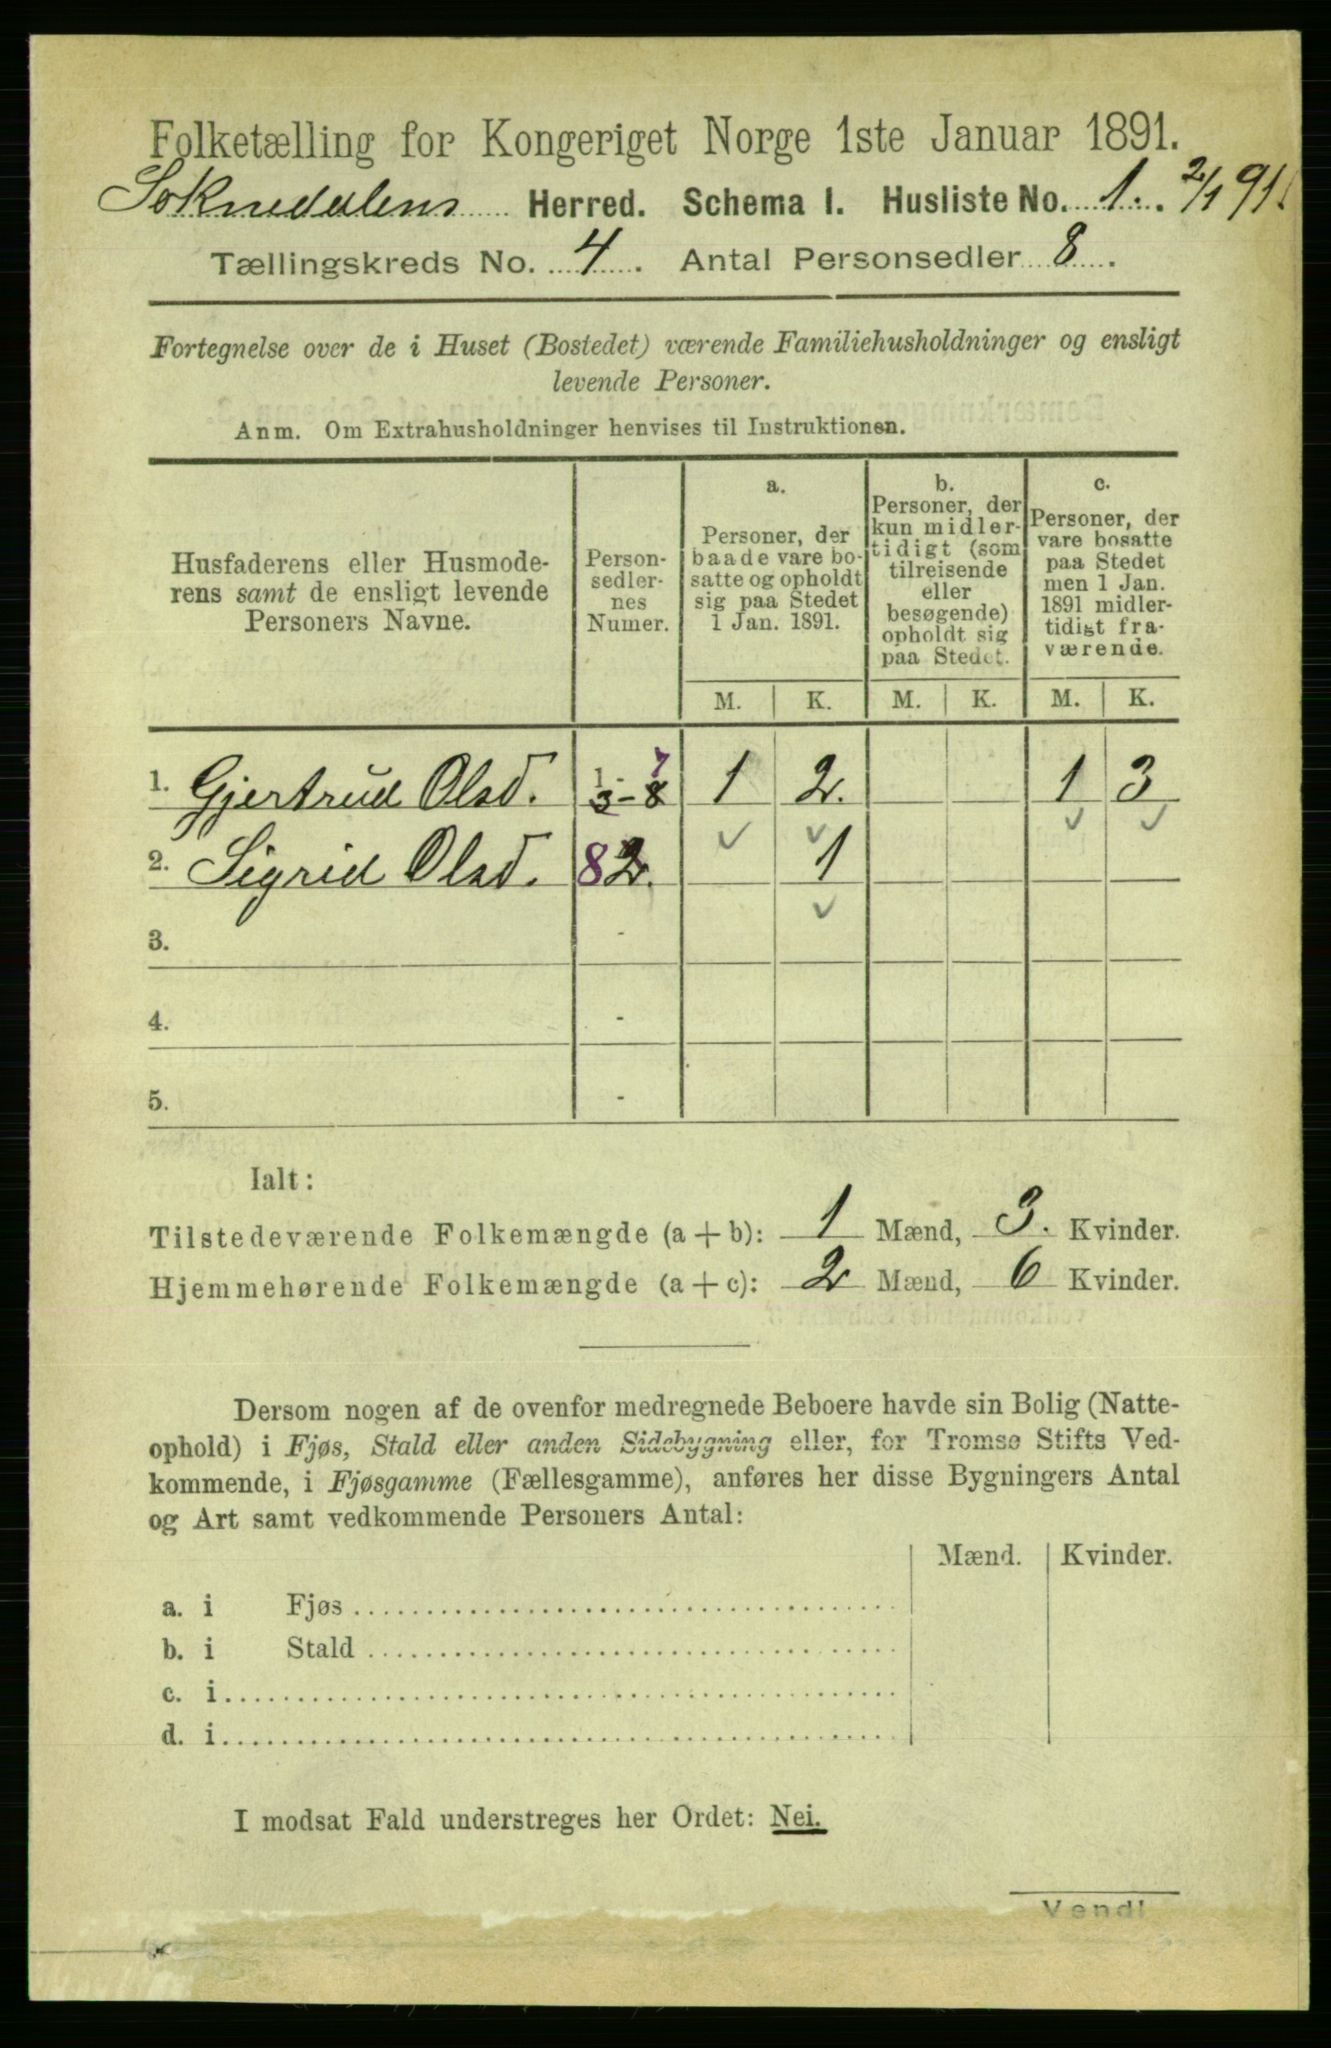 Folketælling for Kongeriget Norge 1ste Januar 1891.
Soknedalens Herred. Schema 1. Husliste No. 1. 2/1 91.
Tællingskreds No. 4. Antal Personsedler 8.
Fortegnelse over de i Huset (Bostedet) værende Familiehusholdninger og ensligt
levende Personer.
Anm. Om Extrahusholdninger henvises til Instruktionen.
Husfaderens eller Husmode-
rens samt de ensligt levende
Personers Navne.
Person-
sedler-
nes
Numer.
a.
Personer, der
baade vare bo-
satte og opholdt
sig paa Stedet
1 Jan. 1891.
b.
Personer, der
kun midler-
tidigt (som
tilreisende
eller
besøgende)
opholdt sig
paa Stedet.
c.
Personer, der
vare bosatte
paa Stedet
men 1 Jan.
1891 midler-
tidigt fra-
værende.
M. K. M. K. M. K.
1. Gjertrud Olsd. 1 - 7 3-8 1 2. 1 3
2. Sigrid Olsd. 8 2. 1
3. -
4. -
5. -
Ialt:
Tilstedeværende Folkemængde (a + b): 1 Mænd, 3. Kvinder.
Hjemmehørende Folkemængde (a + c): 2 Mænd, 6 Kvinder.
Dersom nogen af de ovenfor medregnede Beboere havde sin Bolig (Natte-
ophold) i Fjøs, Stald eller anden Sidebygning eller, for Tromsø Stifts Ved-
kommende, i Fjøsgamme (Fællesgamme), anføres her disse Bygningers Antal
og Art samt vedkommende Personers Antal:
Mænd. Kvinder.
a. i Fjøs
b. i Stald
c. i
d. i
I modsat Fald understreges her Ordet: Nei.
Vend!